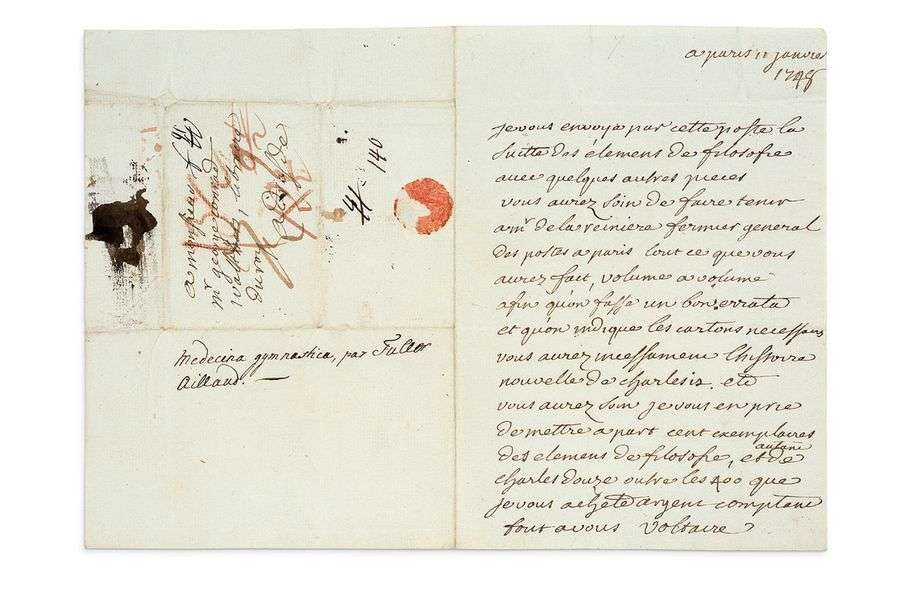 a monsieur
mr george conrad
walther, libraire
du roy
a dresde
140
Medecina gymnastica, par Fuller
Aillaud. —
a paris 10 janvier
1748
je vous envoye par cette poste la
suitte des élemens de filosofie
avec quelques autres pieces
vous aurez soin de faire tenir
a mr de la reiniere fermier general
des postes a paris tout ce que vous
aurez fait, volume a volume
afin qu'on fasse un bon errata
et qu'on indique les cartons necessaires
vous aurez incessament l'histoire
nouvelle de charles 12. etc
vous aurez soin je vous en prie
de mettre a part cent exemplaires
des elemens de filosofie, autant et de
charles douze outre les 400 que
je vous achete argent comptant
tout a vous Voltaire